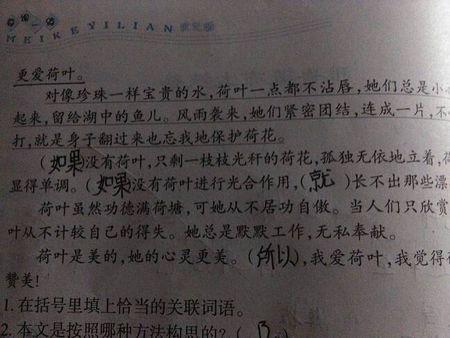 每课一练
MEIKEYILIAN
更爱荷叶。
对像珍珠一样宝贵的水,荷叶一点都不沾唇,她们总是小
起来,留给湖中的鱼儿。风雨袭来,她们紧密团结,连成一片,不
打,就是身子翻过来也忘我地保护荷花。
(如果没有荷叶,只剩一枝枝光秆的荷花,孤独无依地立着,
显得单调。(如果没有荷叶进行光合作用,(就 )长不出那些漂
荷叶虽然功德满荷塘,可她从不居功自傲。当人们只欣赏
叶从不计较自己的得失。她总是默默工作,无私奉献。
荷叶是美的,她的心灵更美。(所以),我爱荷叶,我觉得
赞美!
1.在括号里填上恰当的关联词语。
2.本文是按照哪种方法构思的?( B )